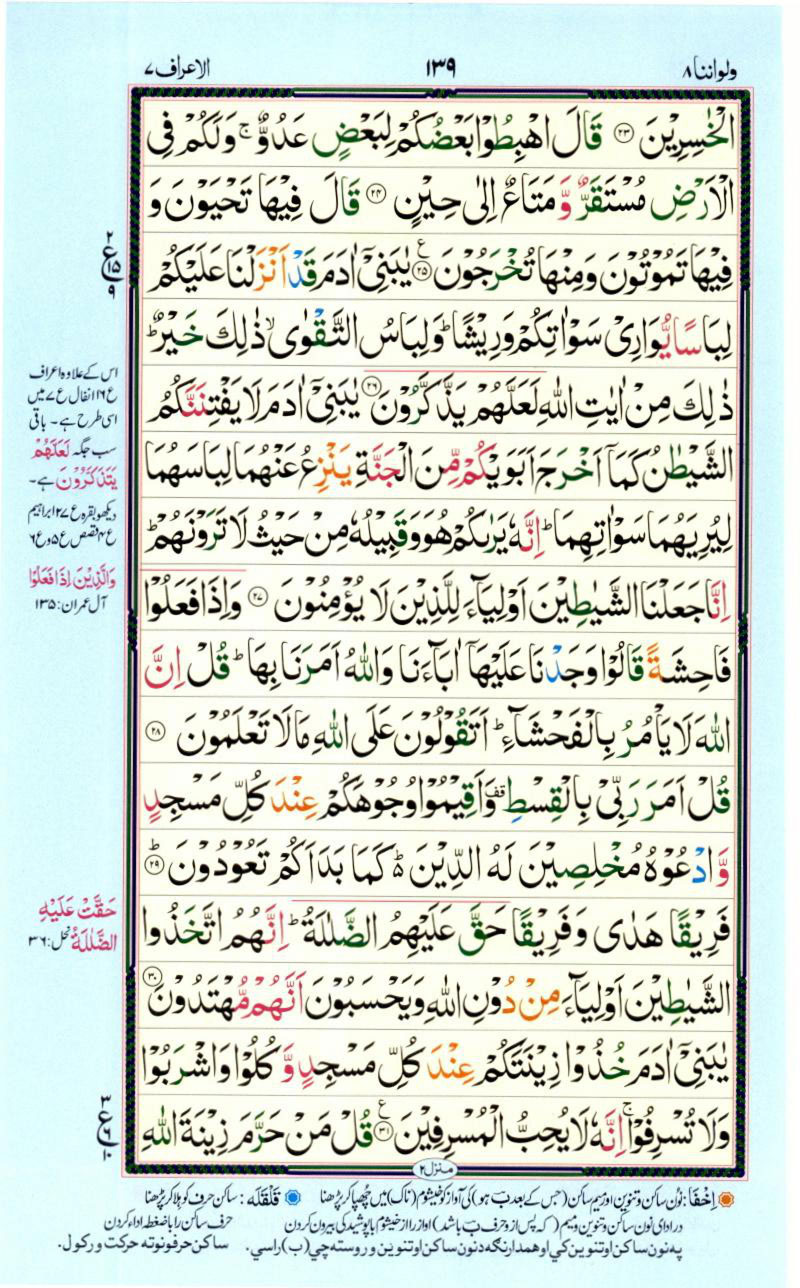 ولواننا ۸
۱۳۹
الاعراف ۷
الْخٰسِرِیْنَ ﴿۲۳﴾ قَالَ اهْبِطُوْا بَعْضُكُمْ لِبَعْضٍ عَدُوٌّ ۚ وَلَكُمْ فِی
الْاَرْضِ مُسْتَقَرٌّ وَّ مَتَاعٌ اِلٰی حِیْنٍ ﴿۲۴﴾ قَالَ فِیْهَا تَحْیَوْنَ وَ
فِیْهَا تَمُوْتُوْنَ وَمِنْهَا تُخْرَجُوْنَ ﴿۲۵﴾ ع یٰبَنِیْۤ اٰدَمَ قَدْ اَنْزَلْنَا عَلَیْكُمْ
لِبَاسًا یُّوَارِیْ سَوْاٰتِكُمْ وَرِیْشًا ؕ وَلِبَاسُ التَّقْوٰی ۙ ذٰلِكَ خَیْرٌ ؕ
ذٰلِكَ مِنْ اٰیٰتِ اللّٰهِ لَعَلَّهُمْ یَذَّكَّرُوْنَ ﴿۲۶﴾ یٰبَنِیْۤ اٰدَمَ لَا یَفْتِنَنَّكُمُ
الشَّیْطٰنُ كَمَاۤ اَخْرَجَ اَبَوَیْكُمْ مِّنَ الْجَنَّةِ یَنْزِعُ عَنْهُمَا لِبَاسَهُمَا
لِیُرِیَهُمَا سَوْاٰتِهِمَا ؕ اِنَّهٗ یَرٰىكُمْ هُوَ وَقَبِیْلُهٗ مِنْ حَیْثُ لَا تَرَوْنَهُمْ ؕ
اِنَّا جَعَلْنَا الشَّیٰطِیْنَ اَوْلِیَآءَ لِلَّذِیْنَ لَا یُؤْمِنُوْنَ ﴿۲۷﴾ وَاِذَا فَعَلُوْا
فَاحِشَةً قَالُوْا وَجَدْنَا عَلَیْهَاۤ اٰبَآءَنَا وَاللّٰهُ اَمَرَنَا بِهَا ؕ قُلْ اِنَّ
اللّٰهَ لَا یَاْمُرُ بِالْفَحْشَآءِ ؕ اَتَقُوْلُوْنَ عَلَی اللّٰهِ مَا لَا تَعْلَمُوْنَ ﴿۲۸﴾
قُلْ اَمَرَ رَبِّیْ بِالْقِسْطِ ۫ وَاَقِیْمُوْا وُجُوْهَكُمْ عِنْدَ كُلِّ مَسْجِدٍ
وَّادْعُوْهُ مُخْلِصِیْنَ لَهُ الدِّیْنَ ؕ۬ كَمَا بَدَاَكُمْ تَعُوْدُوْنَ ﴿۲۹﴾ؕ
فَرِیْقًا هَدٰی وَفَرِیْقًا حَقَّ عَلَیْهِمُ الضَّلٰلَةُ ؕ اِنَّهُمُ اتَّخَذُوا
الشَّیٰطِیْنَ اَوْلِیَآءَ مِنْ دُوْنِ اللّٰهِ وَیَحْسَبُوْنَ اَنَّهُمْ مُّهْتَدُوْنَ ﴿۳۰﴾
یٰبَنِیْۤ اٰدَمَ خُذُوْا زِیْنَتَكُمْ عِنْدَ كُلِّ مَسْجِدٍ وَّ كُلُوْا وَاشْرَبُوْا
وَلَا تُسْرِفُوْا ۚ اِنَّهٗ لَا یُحِبُّ الْمُسْرِفِیْنَ ﴿۳۱﴾ ع قُلْ مَنْ حَرَّمَ زِیْنَةَ اللّٰهِ
منزل ۲
۲
ع ۱۵
۹
اس کے علاوہ اعراف
ع ۱۶ انفال ع ۷ میں
اسی طرح ہے۔ باقی
سب جگہ لَعَلَّهُمْ
یَتَذَكَّرُوْنَ ہے۔
دیکھو بقرہ ع ۲۷ ابراہیم
ع ۴ قصص ع ۵ و ع ۶
وَالَّذِیْنَ اِذَا فَعَلُوْا
آل عمران: ۱۳۵
حَقَّتْ عَلَیْهِ
الضَّلٰلَةُ نحل: ۳۶
۳
ع ۶
۱۰
اِخْفَا: نون ساکن و تنوین اور میم ساکن (جس کے بعد ب ہو) کی آواز کو خیشوم (ناک) میں چھپا کر پڑھنا
قَلْقَلَه: ساکن حرف کو ہلا کر پڑھنا
در ادای نون ساکن و تنوین و میم (که پس از و حرف ب باشد) آواز را از خیشوم با پوشیدگی بیرون کردن
حرف ساکن را با ضغطه ادا کردن
په نون ساکن او تنوین کی او همدا رنگه د نون ساکن او تنوین وروسته چی (ب) راسی.
ساکن حرفونو ته حرکت ورکول.